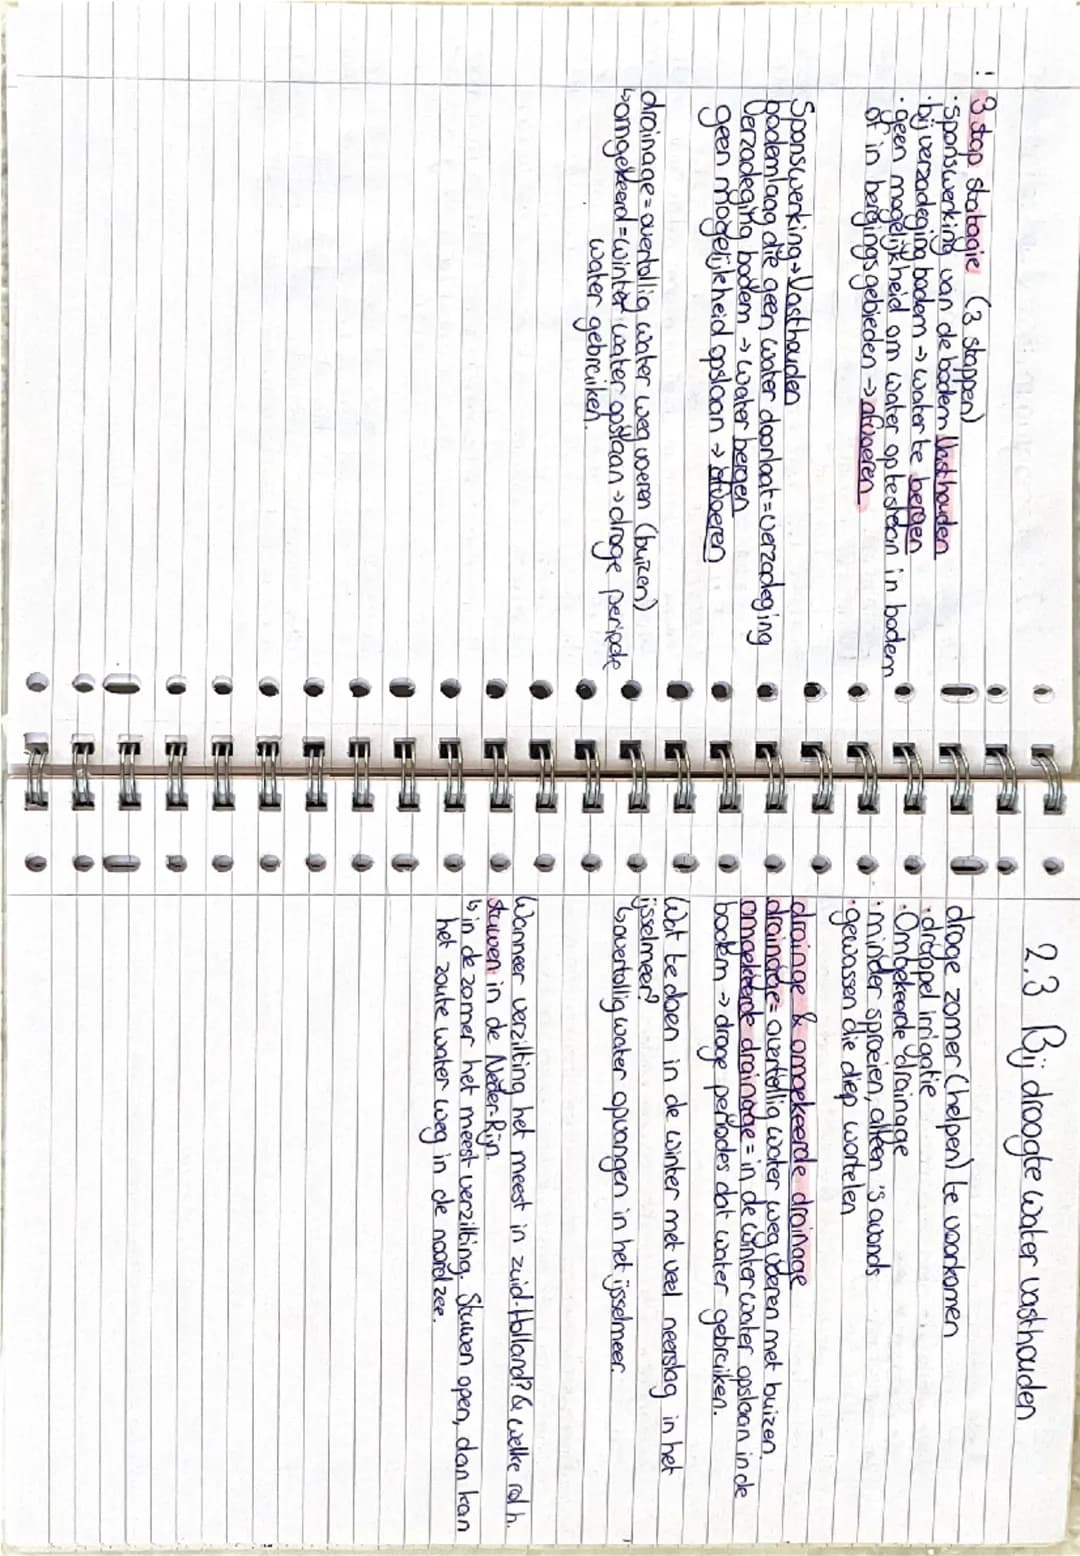 ! 3 stap statagie (3 stappen)
· sponswerking van de bodem Vasthouden
· bij verzadeging bodem → water te bergen
· geen mogelijkheid om water op te slaan in bodem
of in bergingsgebieden → afvoeren
Sponswerking → Vasthouden
Bodemlaag die geen water doorlaat = verzadeging
Verzadeging bodem → water bergen
geen mogelijkheid opslaan → afvoeren
drainage = overtollig water weg voeren (buizen)
↳ omgekeerd = winter water opslaan → droge periode
water gebruiken.
2.3 Bij droogte water vasthouden
droge zomer (helpen) te voorkomen
· druppel irrigatie
· Omgekeerde drainage
· minder sproeien, alleen 's avonds
· gewassen die diep wortelen
drainge & omgekeerde drainage
draindage = overtollig water weg voeren met buizen.
omgekeerde drainage = in de winter water opslaan in de
bodem → droge periodes dat water gebruiken.
Wat te doen in de winter met veel neerslag in het
ijsselmeer?
↳ overtollig water opvangen in het ijsselmeer.
Wanneer verzilting het meest in zuid-Holland? & welke rol h.
stuwen in de Neder-Rijn.
↳ in de zomer het meest verzilting. Stuwen open, dan kan
het zoute water weg in de noordzee.